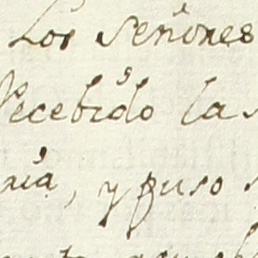 Los Señores
Recebido la
ria, y puso